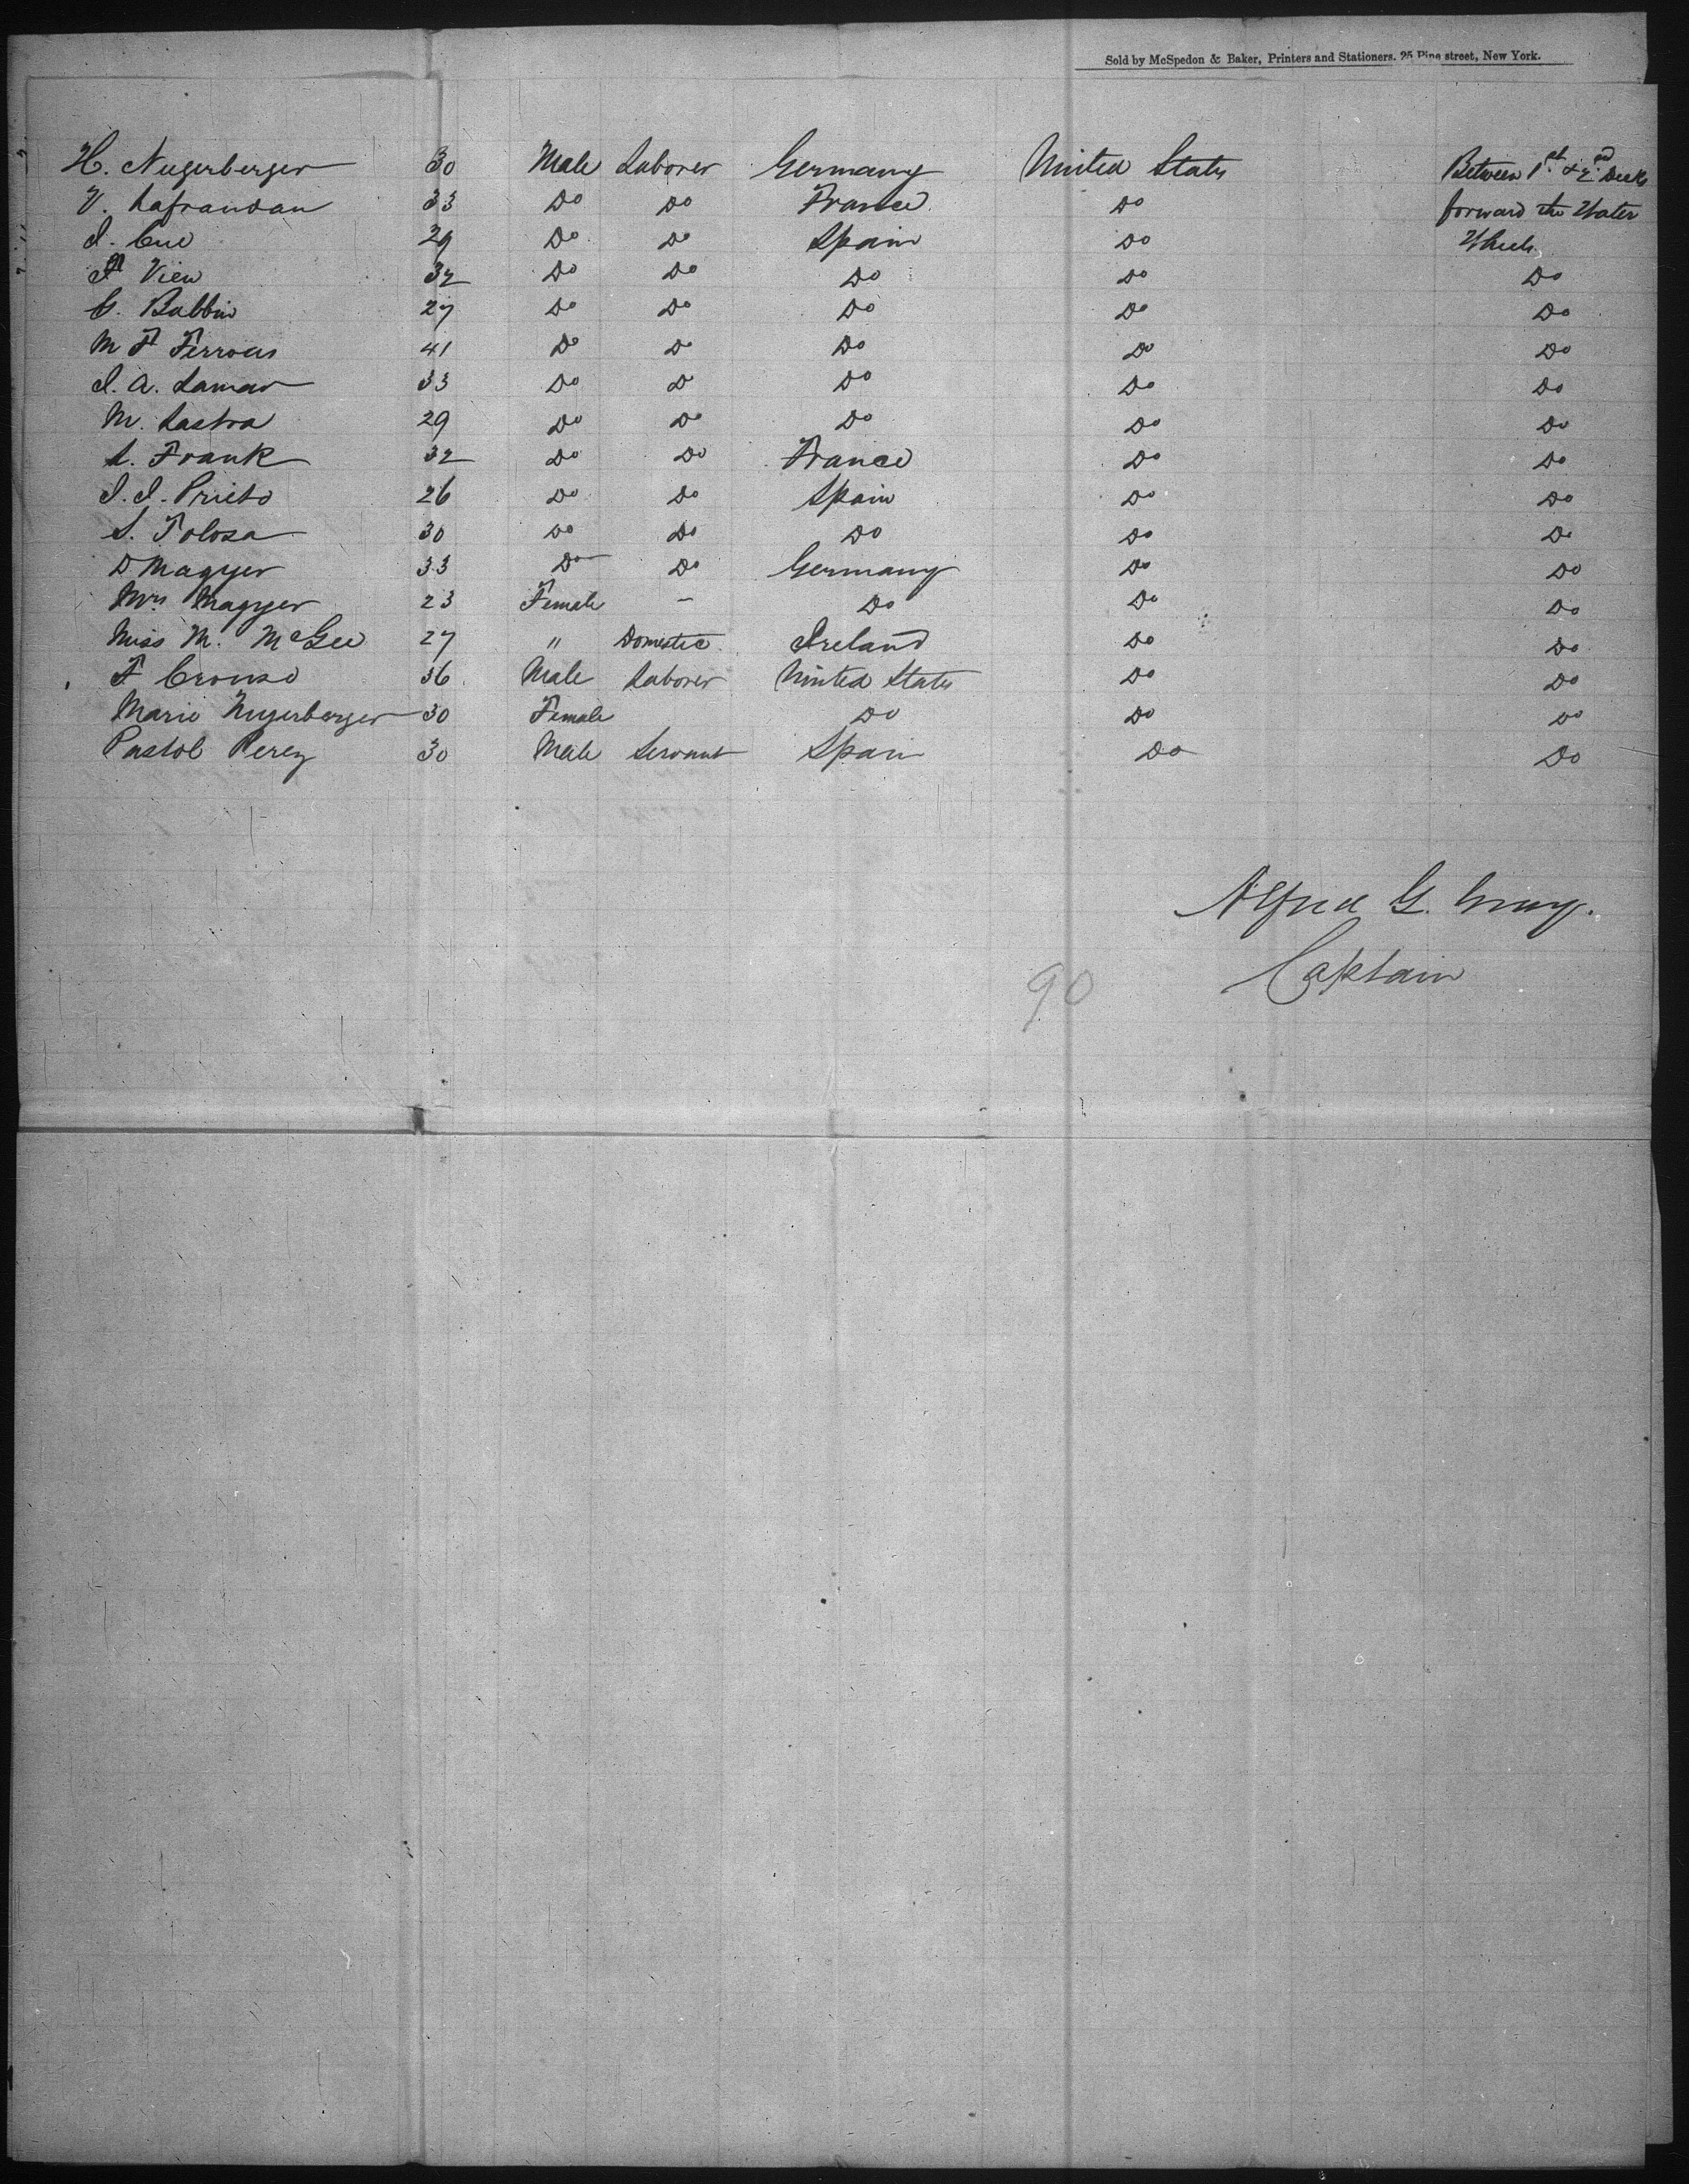 Sold by McSpedon & Baker, Printers and Stationers. 25 Pine street, New York.
H. Nugerberger 30 Male Laborer Germany United States Between 1st & 2nd Decks
V. Lafrandan 33 Do Do France. Do forward the Water
I. Cue 29 Do Do Spain Do Wheels
F View 32 Do Do Do Do Do
C. Babbin 27 Do Do Do Do Do
M F Ferroas 41 Do Do Do Do Do
I. A. Lamar 33 Do Do Do Do Do
M. Lastra 29 Do Do Do Do Do
L. Frank 32 Do Do France Do Do
I. I. Prieto 26 Do Do Spain Do Do
S. Tolosa 30 Do Do Do Do Do
D Magyer 33 Do Do Germany Do Do
Mrs Magyer 23 Female - Do Do Do
Miss M. McGee 27 " Domestic Ireland Do Do
F Crouso 36 Male Laborer United States Do Do
Marie Nugerberger 30 Female Do Do Do
Pastol Perez 30 Male Servant Spain Do Do
Alfred G. Gray.
Captain
90